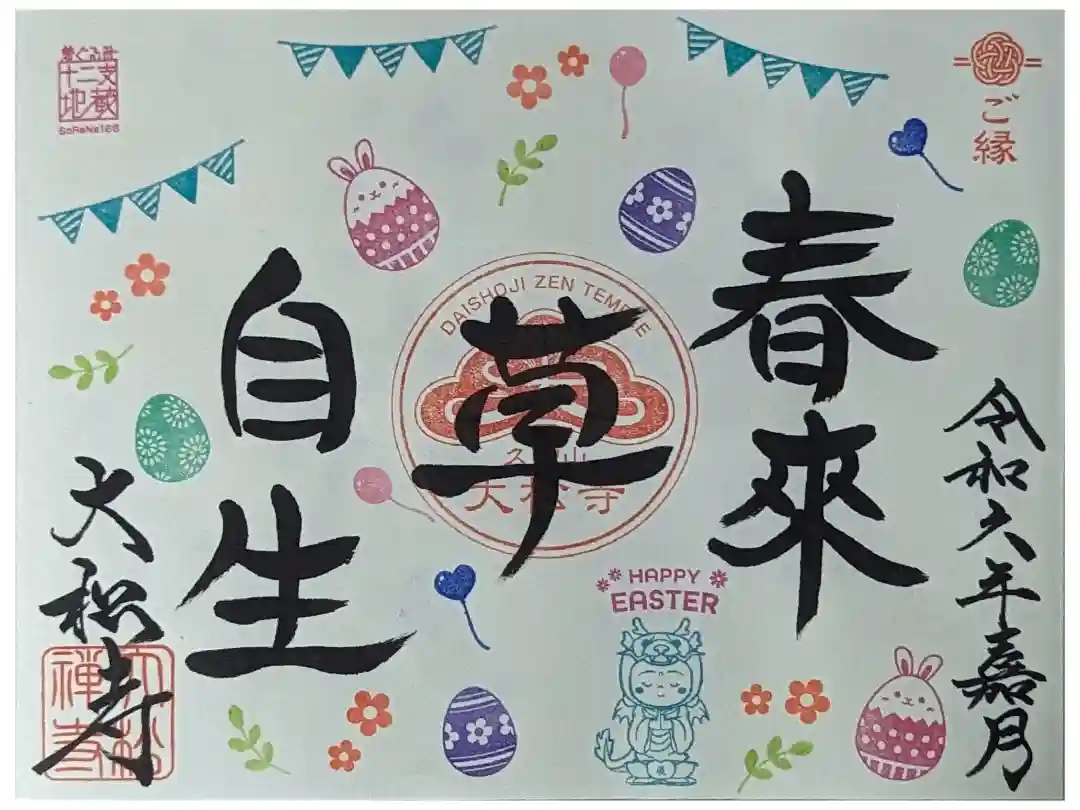 春來
草
自生
令和六年嘉月
大松寺
ご縁
夢ぐるみ
十二支
地蔵
SoRaNe166
DAISHOJI ZEN TEMPLE
大松寺
HAPPY
EASTER